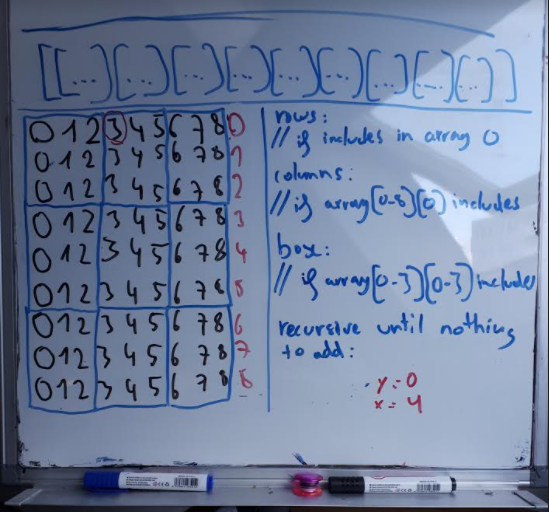 [[...][...][...][...][...][...][...][...][...]]
0 1 2 3 4 5 6 7 8 0
0 1 2 3 4 5 6 7 8 1
0 1 2 3 4 5 6 7 8 2
0 1 2 3 4 5 6 7 8 3
0 1 2 3 4 5 6 7 8 4
0 1 2 3 4 5 6 7 8 5
0 1 2 3 4 5 6 7 8 6
0 1 2 3 4 5 6 7 8 7
0 1 2 3 4 5 6 7 8 8
rows:
// if includes in array 0
columns:
// if array[0-8][0] includes
box:
// if array[0-3][0-3] includes
recursive until nothing
to add:
y = 0
x = 4